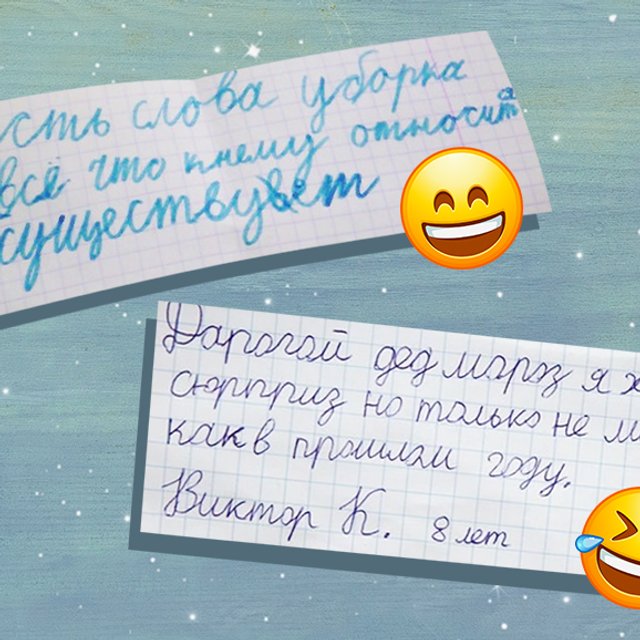 усть слова уборка
всё что кнему относитя
существует
Дарогой дед мароз я х
сюрприз но только не м
как в прошлом году.
Виктор К. 8 лет